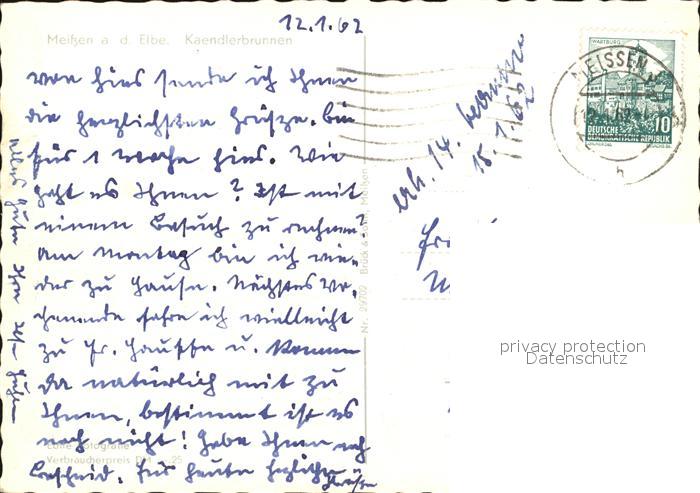 12.1.62
Meißen a. d. Elbe. Kaendlerbrunnen
von hier sende ich Ihnen
die herzlichsten Grüsze. bin
für 1 Woche hier. Wie
geht es Ihnen? Ist mit
einem Besuch zu rechnen?
Am Montag bin ich wie-
der zu Hause. Nächstes Wo-
chenende fahre ich vielleicht
zu Fr. u. komme
da natürlich mit zu
Ihnen, bestimmt ist es
noch nicht! Gebe Ihnen noch
Bescheid. Für heute herzliche
Grüße
Alles Gute
Echte Fotografie
Verbraucherpreis DM -,25
Nr. 29709 Brück & Sohn, Meißen
erh. 14.
15.1.62
WARTBURG
MEISSEN
10
DEUTSCHE
DEMOKRATISCHE REPUBLIK
h
Fr
privacy protection
Datenschutz